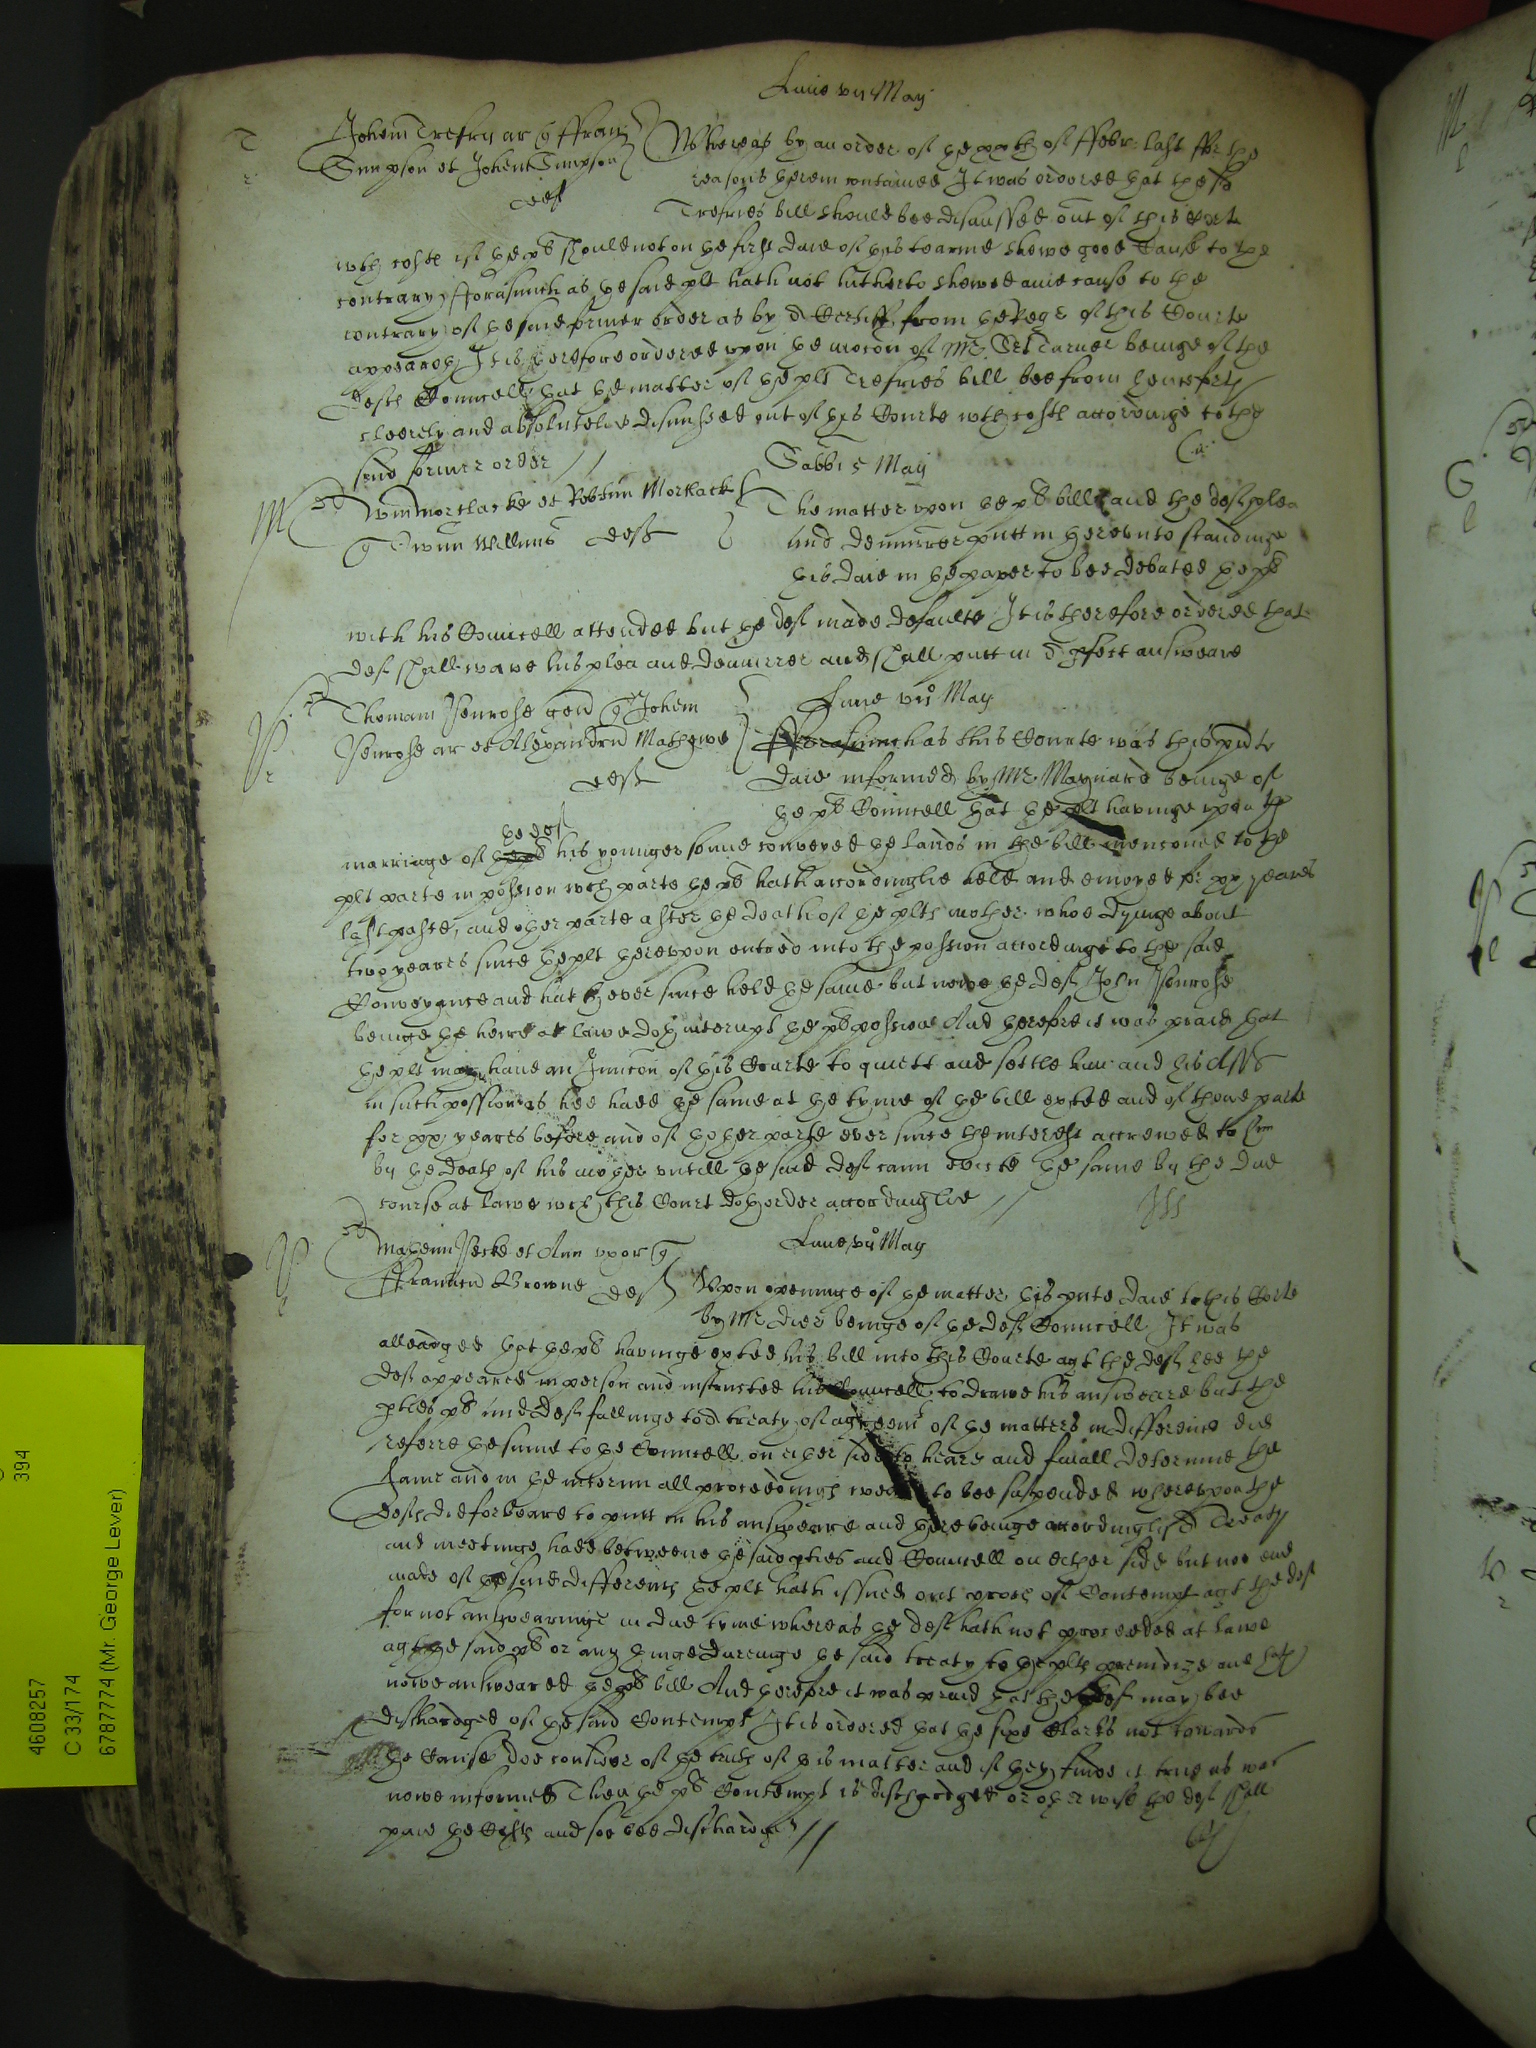 Lune vij May
T
Johem Trefry ar q ffran
Simpson et Johem Simpson
def
Whereas by an order of the xxth of ffebr last for the
reasons therein contained It was ordered that the
Trefries bill should bee dismissed out of this Court
wth costs if the plt should not on the first daie of this tearme shewe good Cause to the
contrary, fforasmuch as the said plt hath not hitherto shewed anie cause to the
contrary of the said former order as by a Certiff from the Regr of this Courte
appeareth It is therefore ordered upon the mocon of Mr Turner beinge of the
defts Councell that the matter of the plt Trefries bill bee from henceforth
cleerely and absolutelie dismissed out of this Courte wth costs accordinge to the
said former order //
Sabbi 5 May
M
Mortlacke et Mortlack
q Willims def
The matter upon the plts bill and the defts plea
and demurrer putt in thereunto standinge
this daie in the paper to bee debated the plt
with his Councell attended but the def made defaulte It is therefore ordered that
def shall wave his plea and demurrer and shall putt in a pfect answeare
Lune vij May
P
Thomam Penrose gen q Johem
Penrose ar et Alexandru Mathewe
defts
fforasmuch as this Courte was this pnte
daie informed by Mr Maynard beinge of
the plts Councell that the plt havinge upon the
the def
marriage of his younger sonne conveyed the lands in the bill mencioned to the
plt parte in possion wch parte the plt hath accordinglie held and enioyed for xx yeares
last paste, and other parte after the death of the plts mother whoe dyinge about
two yeares since the plt thereupon entred into the possion accordinge to the said
Conveyance and hath ever since held the same but nowe the def John Penrose
beinge the heire at lawe doth interupt the plts possion And therefore it was praid that
the plt may have an Iniuncon of this Courte to quiett and settle him and his Ass
in such possion as hee had the same at the tyme of the bill exhted and of thone parte
for xx yeares before and of thother parte ever since the interest accrewed to him
by the death of his mother untill the said def cann evicte the same by the due
course at lawe wch this Court doth order accordinglie //
Lune vij May
P
Mathem Pecke et Ann uxor q
ffrancu Browne def
Upon openinge of the matter this pnte daie to this Courte
by Mr Dier beinge of the defts Councell It was
alleadged that the plt havinge exhted his bill into this Courte agt the def hee the
def appeared in person and instructed his Councell to drawe his answeare but the
pties plt and def fallinge to a treaty of agreemt of the matters in difference did
referre the same to the Councell on either side to heare and finall determine the
same and in the interim all proceedings weere to bee suspended whereupon the
deft did forbeare to putt in his answeare and there beinge accordingly a Treaty
and meetinge had betweene the said pties and Councell on ether side but noe end
made of the said differences the plt hath issued out proces of Contempt agt the def
for not answearinge in due tyme whereas the def hath not proceeded at lawe
agt the said plt or any thinge duringe the said treaty to the plts preiudize and hath
nowe answeared the plts bill And therefore it was praid that the def may bee
discharged of the said Contempt It is ordered that the sixe Clarks not towards
the Cause doe consider of the truth of this matter and if they finde it true as was
nowe informed Then the plts Contempt is discharged or otherwise the def shall
paie the Costs and soe bee discharged //
4608257
C 33/174
6787774 (Mr. George Lever)
394